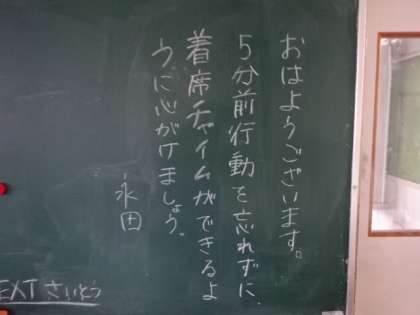 おはようございます。
5分前行動を忘れずに、
着席チャイムができるよ
うに心がけましょう。
永田
EXT さいとう